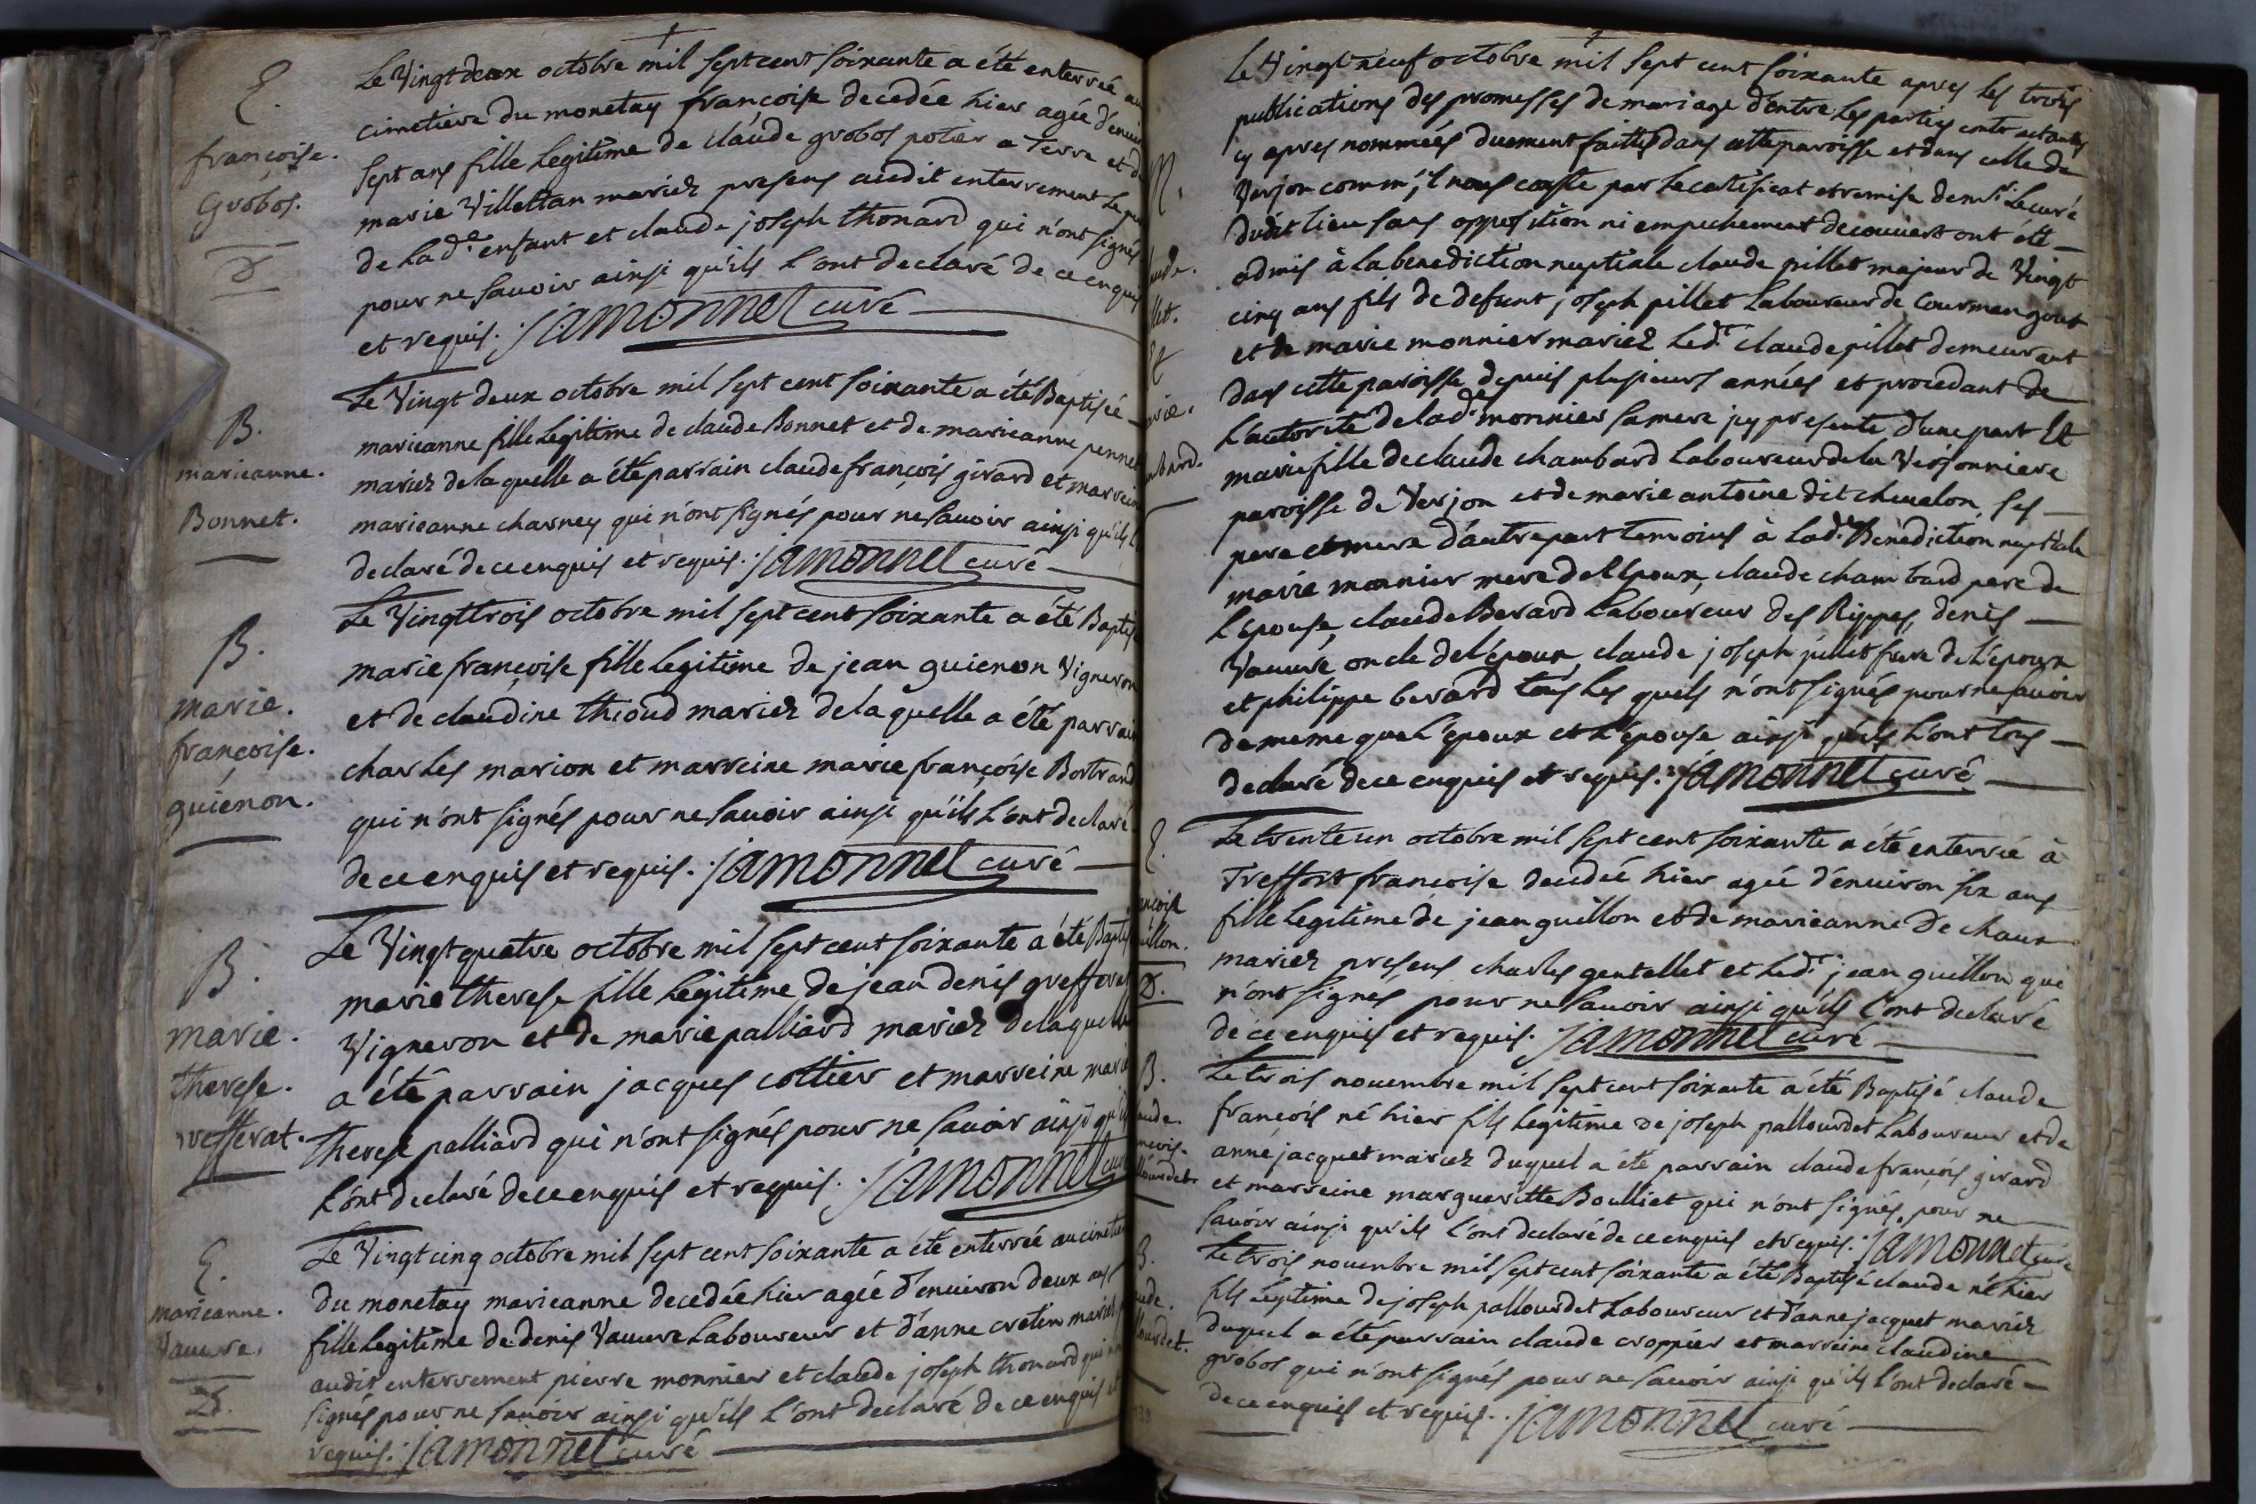 E.
françoise.
Grobos.
D
Le Vingt deux octobre mil sept cent soixante a été enterrée au
cimetiere du monetay françoise decedée hier agée d'enuiron
sept ans fille legitime de claude grobos potier a Terre et de
marie Villettan mariez presens audit enterrement Le pere
de lad.e enfant et claude joseph thonard qui n'ont signés
pour ne sauoir ainsi qu'ils l'ont declaré de ce enquis
et requis. jamonnet curé
B.
marieanne.
Bonnet.
Le Vingt deux octobre mil sept cent soixante a été Baptisée
marieanne fille legitime de claude Bonnet et de marieanne pennet
mariez de laquelle a été parrain claude françois girard et marreine
marieanne charney qui n'ont signés pour ne sauoir ainsi qu'ils l'
declaré de ce enquis et requis. jamonnet curé
B.
marie.
françoise.
guienon.
Le Vingt trois octobre mil sept cent soixante a été Baptisée
marie françoise fille legitime de jean guienon Vigneron
et de claudine thioud mariez de laquelle a été parrain
charles marion et marreine marie françoise Bertrand
qui n'ont signés pour ne sauoir ainsi qu'ils l'ont declaré
de ce enquis et requis. jamonnet curé
B.
marie.
therese.
greffera­t.
Le Vingt quatre octobre mil sept cent soixante a été Baptisée
marie therese fille legitime de jean denis grefferat
Vigneron et de marie palliard mariez de laquelle
a été parrain jacques cottier et marreine marie
therese palliard qui n'ont signés pour ne sauoir ainsi qu'ils
l'ont declaré de ce enquis et requis. jamonnet curé
E.
marieanne.
Vauure.
D.
Le Vingt cinq octobre mil sept cent soixante a été enterrée au cimetiere
du monetay marieanne decedée hier agée d'enuiron deux ans
fille legitime de denis Vauure Laboureur et d'anne cretin mariez
audit enterrement pierre monnier et claude joseph thonard qui n'ont
signés pour ne sauoir ainsi qu'ils l'ont declaré de ce enquis et
requis. jamonnet curé
M.
aude.
llet.
Et
arie.
mbard.
Le Vingt neuf octobre mil sept cent soixante apres les trois
publications des promesses de mariage d'entre les parties contractantes
cy apres nommées duement faittes dans cette paroisse et dans celle de
Verjon comm'il nous conste par le certificat et remise de mr. Le curé
dudit lieu sans opposition ni empechement decouvert ont été
admis à la benediction nuptiale claude pillet majeur de Vingt
cinq ans fils de defunt joseph pillet Laboureur de Courmangout
et de marie monnier mariez led.t claude pillet demeurant
dans cette paroisse depuis plusieurs années et procedant de
l'autorité de lad.e monnier sa mere icy presente d'une part Et
marie fille de claude chambard Laboureur de la Verjonniere
paroisse de Verjon et de marie antoine dit cheualon ses
pere et mere d'autre part temoins à lad.e Benediction nuptiale
marie monnier mere de l'Epoux, claude chambard pere de
l'Epouse, claude Berard Laboureur des Rippes, denis
Vauure oncle de l'époux, claude joseph pillet frere de l'époux
et philippe berard tous les quels n'ont signés pour ne sauoir
de meme que l'epoux et l'épouse ainsi qu'ils l'ont tous
declaré de ce enquis et requis. jamonnet curé
E.
ancoise
uillon.
D.
Le trente un octobre mil sept cent soixante a été enterrée à
Treffort francoise decedée hier agée d'enuiron six ans
fille legitime de jean guillon et de marieanne De chaux
mariez presens charles gentellet et led.t jean guillon qui
n'ont signés pour ne sauoir ainsi qu'ils l'ont declaré
de ce enquis et requis. jamonnet curé
B.
aude.
ancois.
llourdet.
Le trois nouembre mil sept cent soixante a été Baptisé claude
francois né hier fils legitime de joseph pallourdet Laboureur et de
anne jacquet mariez duquel a été parrain claude françois girard
et marreine margueritte Boulliet qui n'ont signés pour ne
sauoir ainsi qu'ils l'ont declaré de ce enquis et requis. jamonnet curé
B.
aude.
lourdet.
Le trois nouembre mil sept cent soixante a été Baptisé claude né hier
fils legitime de joseph pallourdet Laboureur et d'anne jacquet mariez
duquel a été parrain claude croppier et marreine claudine
grobos qui n'ont signés pour ne sauoir ainsi qu'ils l'ont declaré
de ce enquis et requis. jamonnet curé